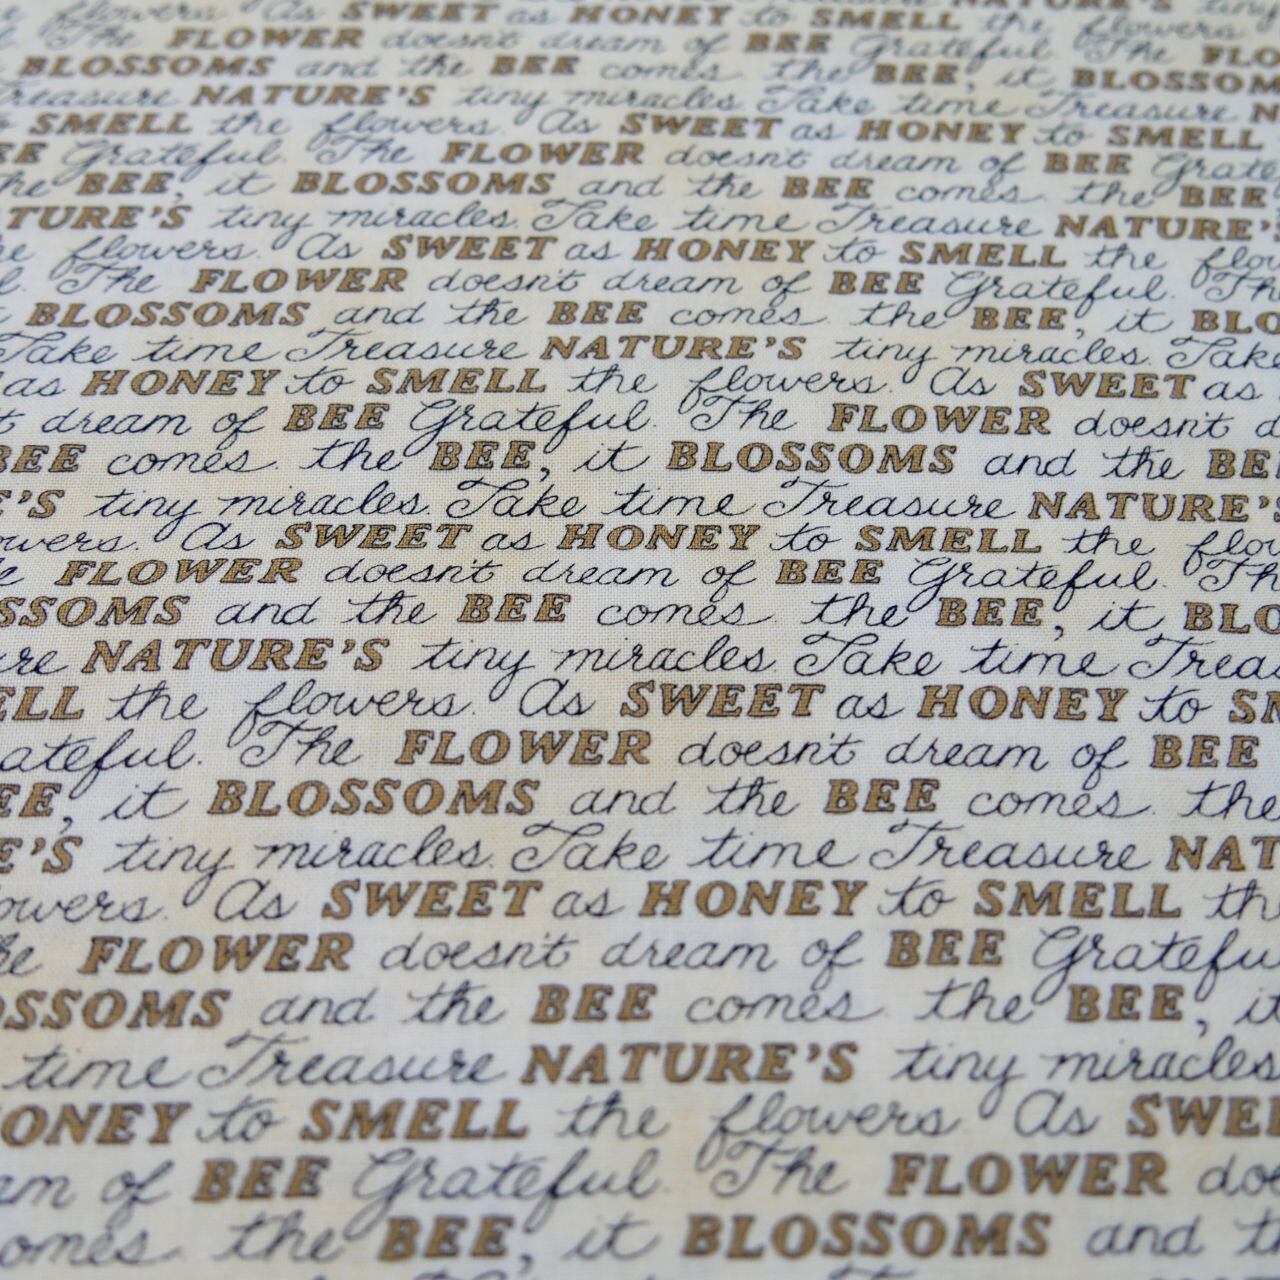 flowers. As SWEET as HONEY to SMELL the flowers
The FLOWER doesn't dream of BEE Grateful. The
BLOSSOMS and the BEE comes. the BEE, it
Treasure NATURE'S tiny miracles. Take time Treasure
SMELL the flowers. As SWEET as HONEY to SMELL
Grateful. The FLOWER doesn't dream of BEE
BEE, it BLOSSOMS and the BEE comes. the BEE
tiny miracles. Take time Treasure NATURE'S
flowers. As SWEET as HONEY to SMELL the
The FLOWER doesn't dream of BEE Grateful.
BLOSSOMS and the BEE comes. the BEE, it
Take time Treasure NATURE'S tiny miracles. Take
as HONEY to SMELL the flowers. As SWEET as
dream of BEE Grateful. The FLOWER doesn't
BEE comes. the BEE, it BLOSSOMS and the
tiny miracles. Take time Treasure NATURE'S
As SWEET as HONEY to SMELL the
FLOWER doesn't dream of BEE Grateful.
and the BEE comes. the BEE, it
NATURE'S tiny miracles. Take time
the flowers. As SWEET as HONEY to
The FLOWER doesn't dream of BEE
it BLOSSOMS and the BEE comes. the
tiny miracles. Take time Treasure
As SWEET as HONEY to SMELL
FLOWER doesn't dream of BEE
and the BEE comes. the BEE, it
time Treasure NATURE'S tiny miracles
to SMELL the flowers. As
of BEE Grateful. The FLOWER
the BEE, it BLOSSOMS and